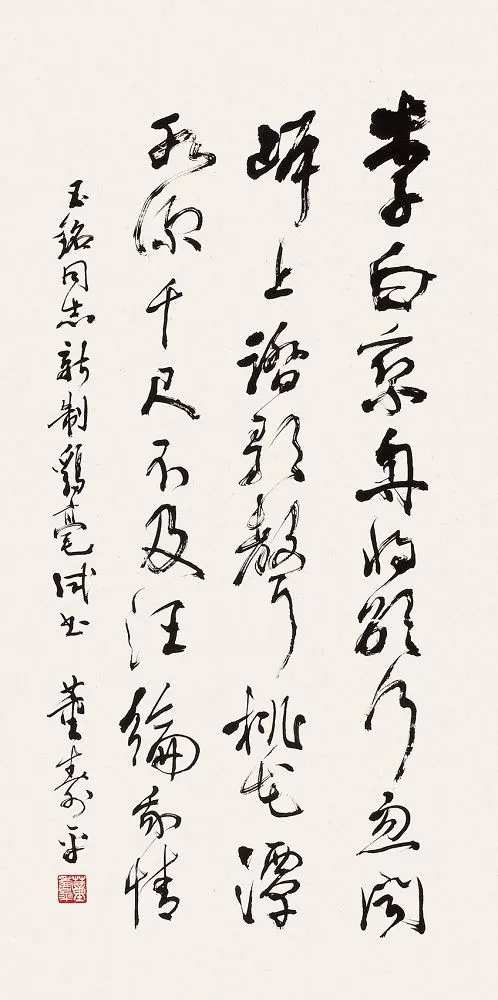 李白乘舟将欲行忽闻
岸上踏歌聲桃花潭
水深千尺不及汪綸我情
玉銘同志新制鷄毫试书 董寿平